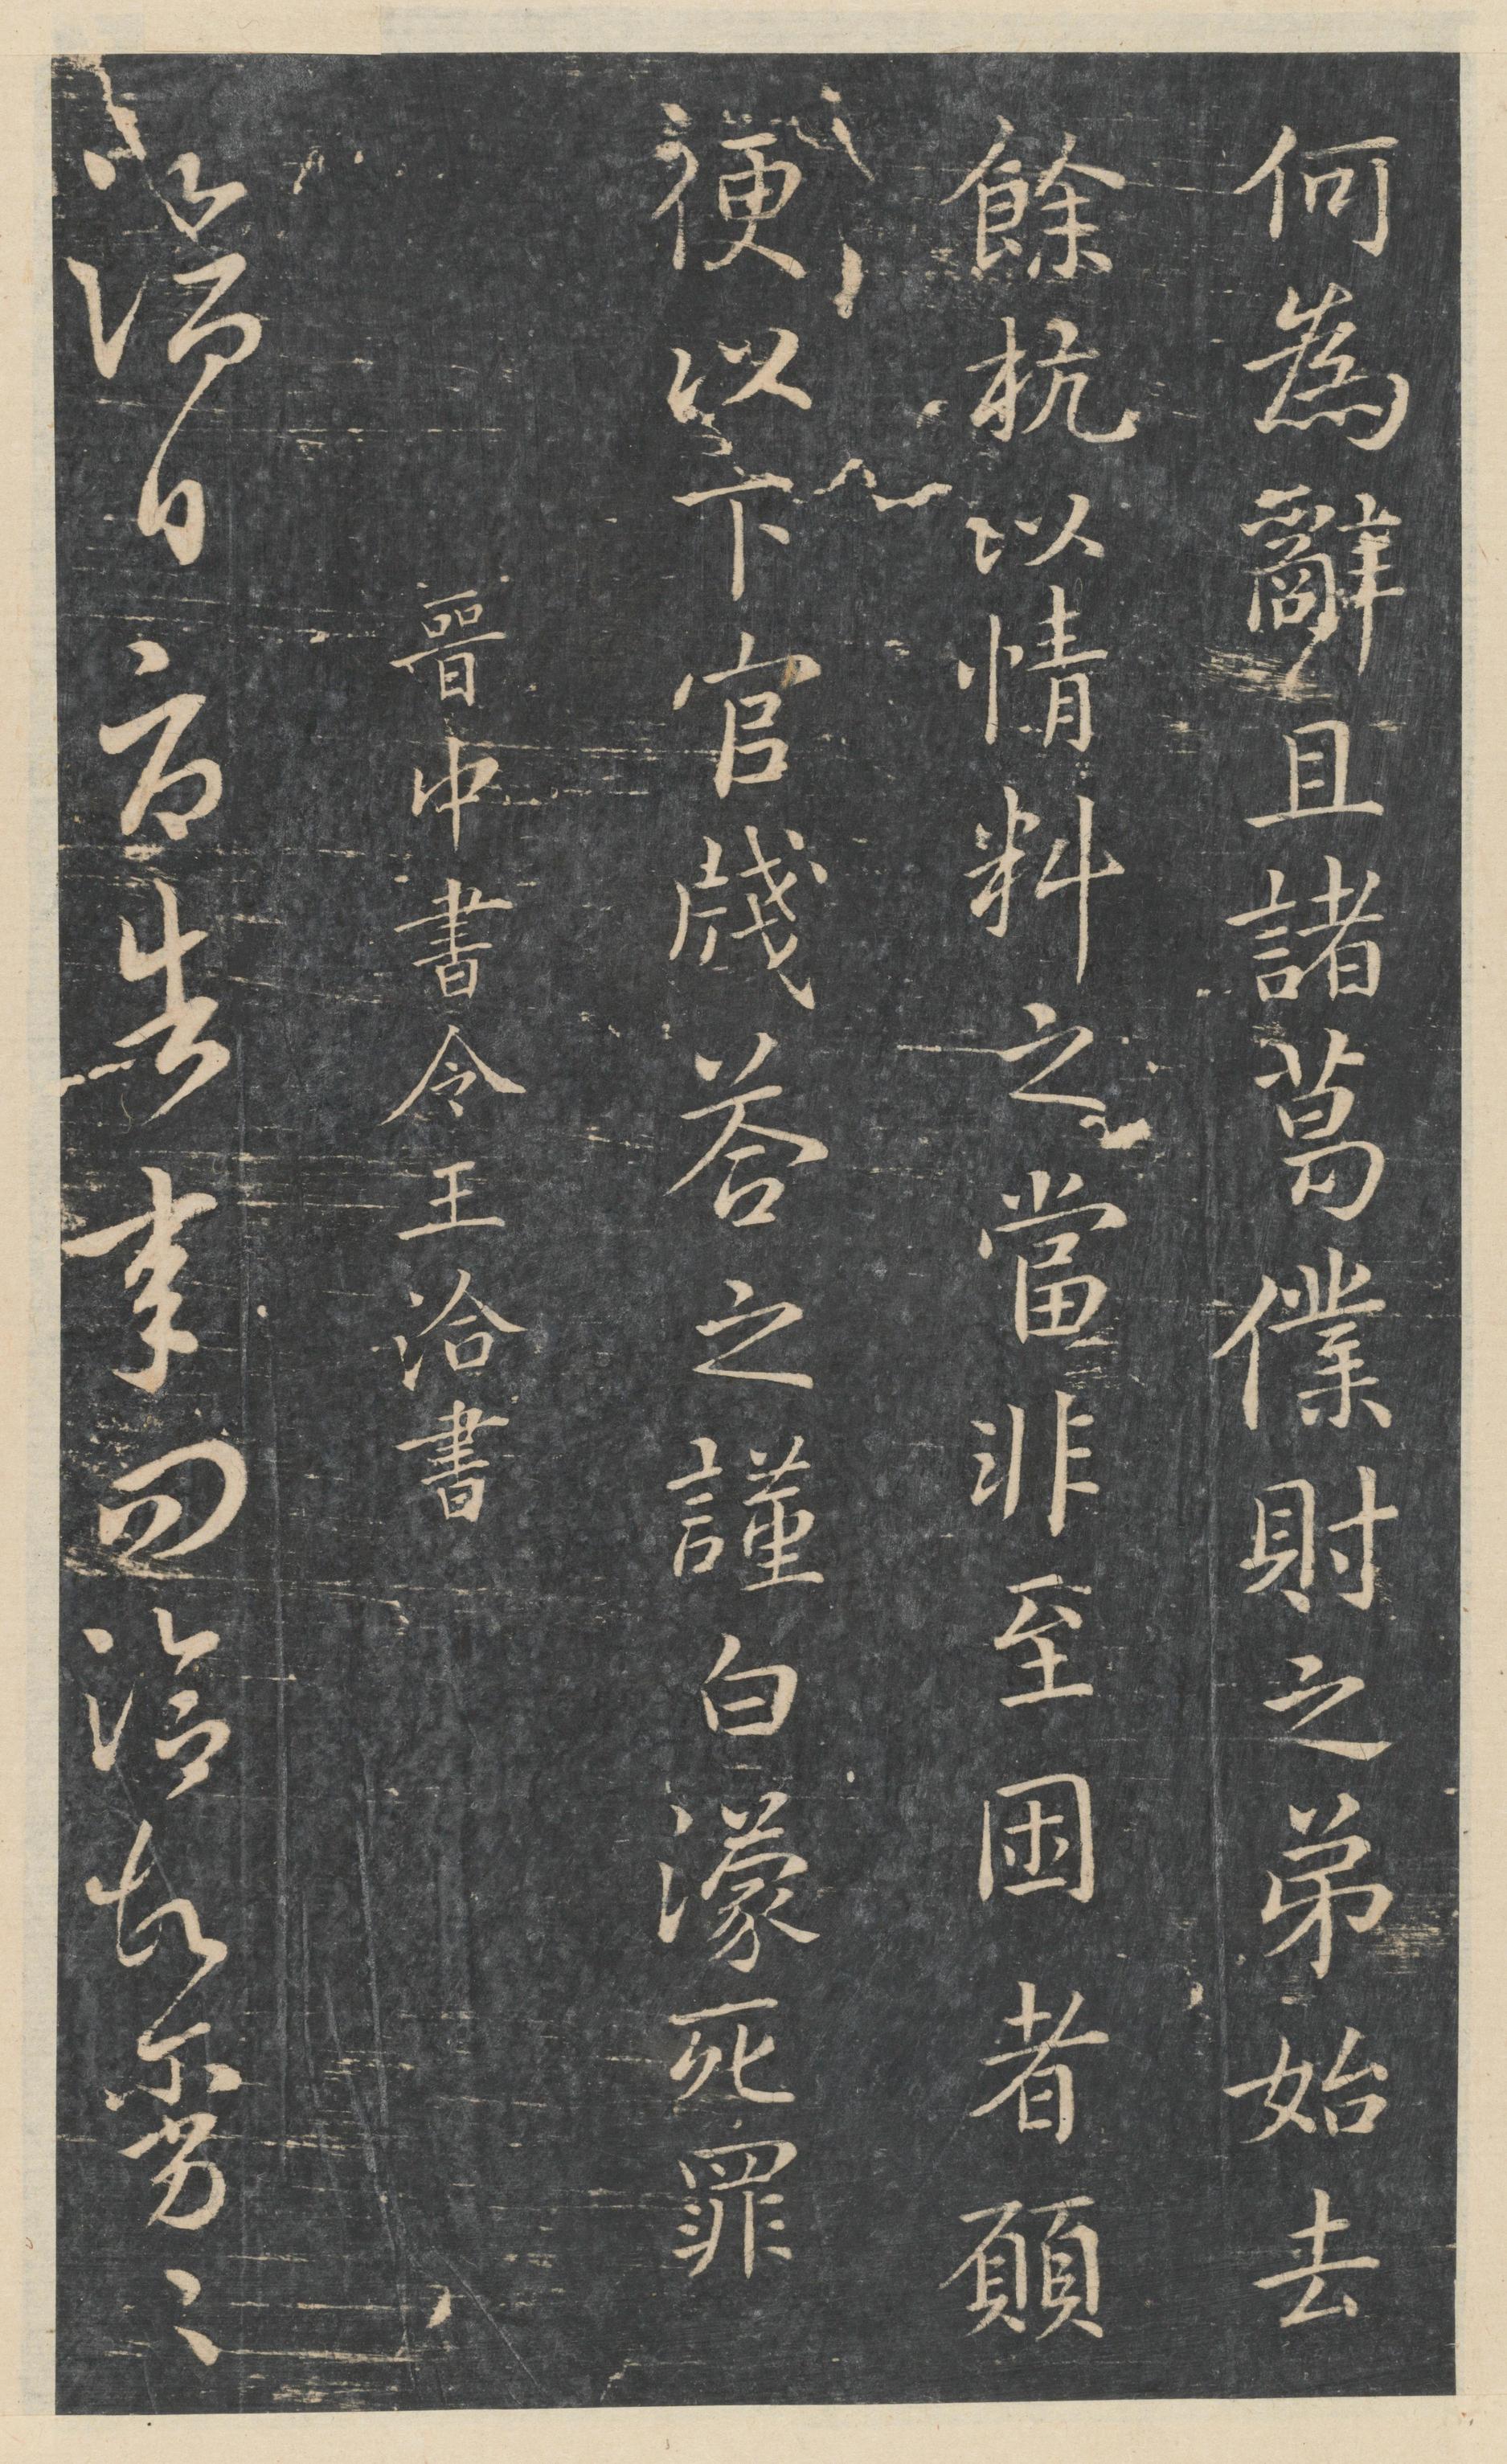 何為辭且諸葛僕財之弟始去
餘杭以情料之當非至困者願
便以下官牋荅之謹白濛死罪
晉中書令王洽書
洽頓首言